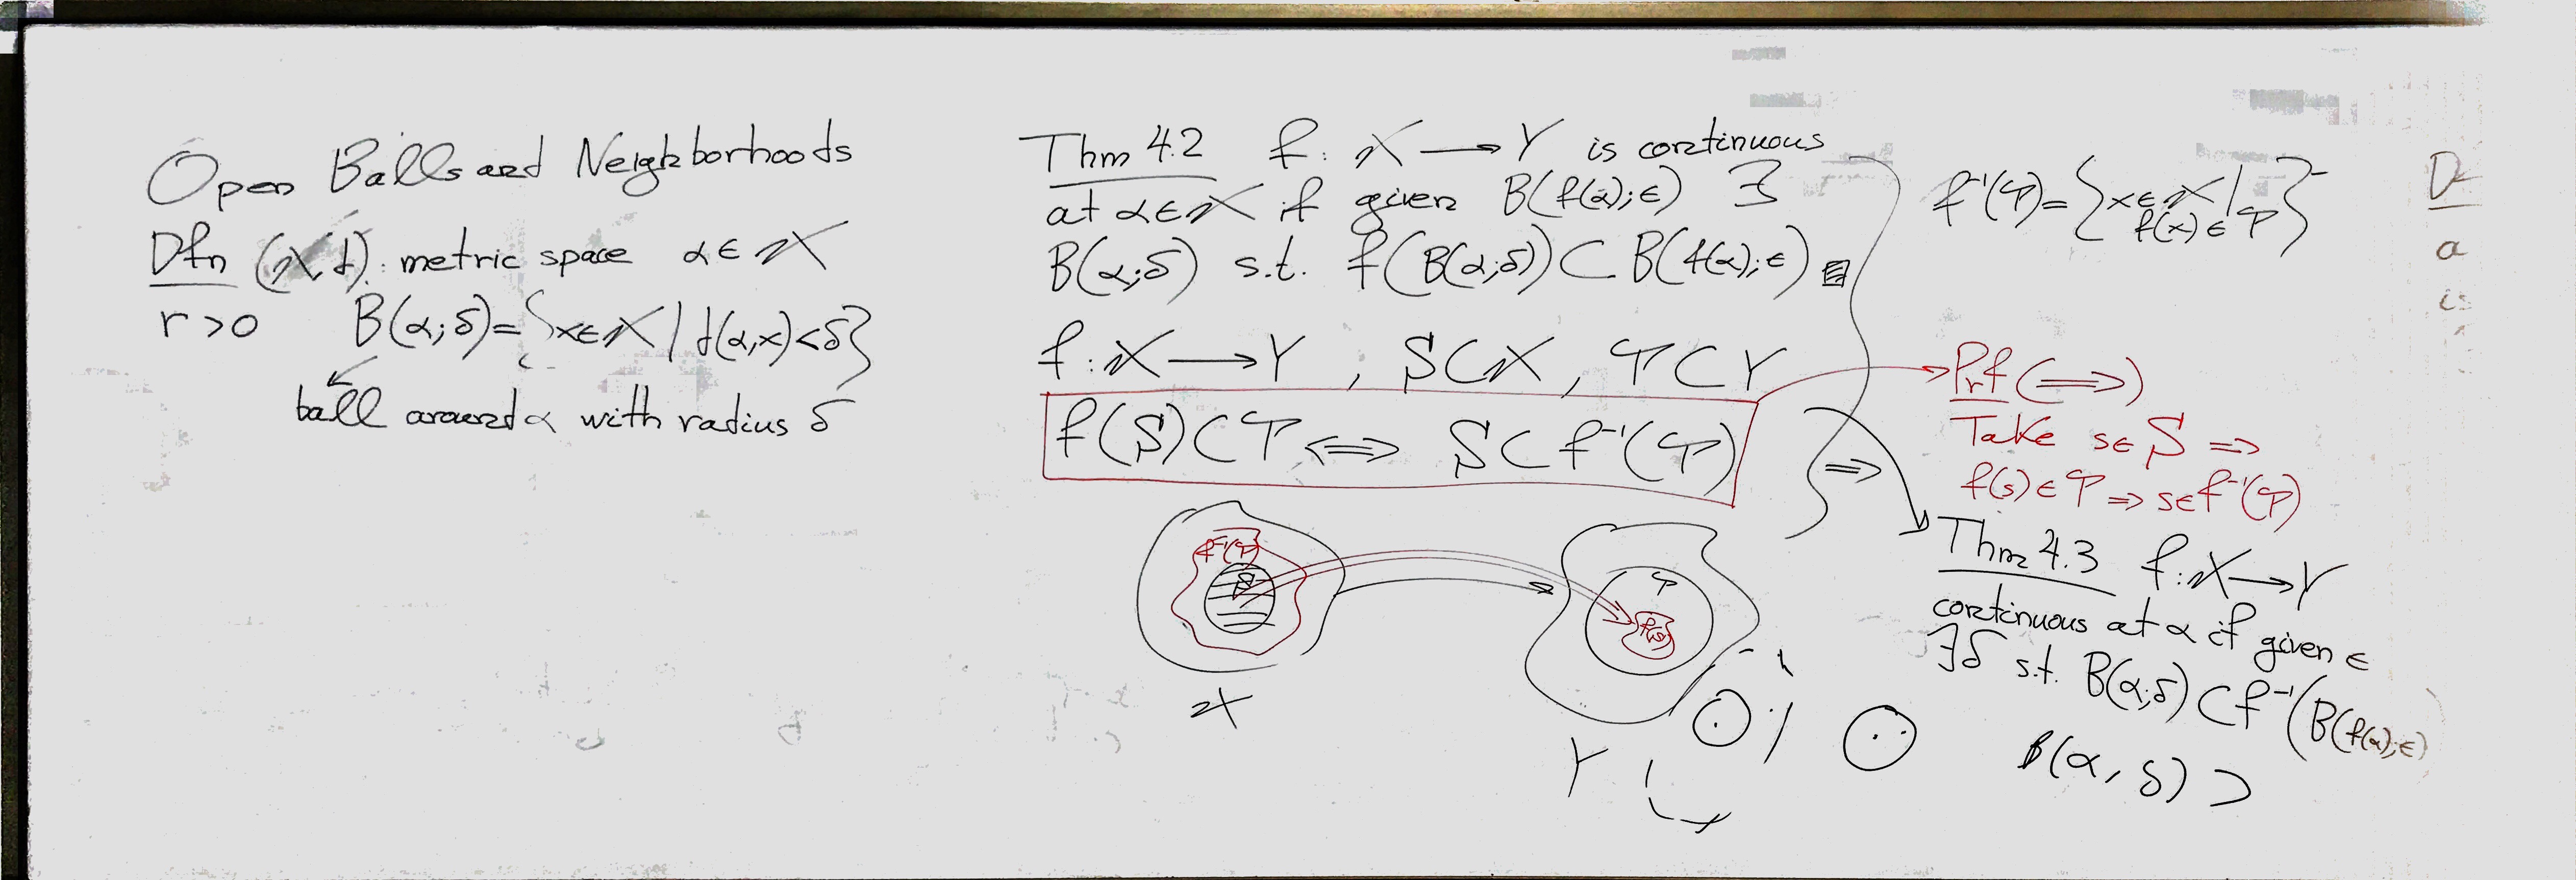 Open Balls and Neighborhoods
Dfn (X,d): metric space α∈X
r>0 B(α;δ)={x∈X|d(α,x)<δ}
ball around α with radius δ
Thm 4.2 f: X⟶Y is continuous
at α∈X if given B(f(α);ϵ) ∃
B(α;δ) s.t. f(B(α;δ))⊂B(f(α);ϵ)
f:X⟶Y, S⊂X, T⊂Y
f(S)⊂T⟺S⊂f⁻¹(T)
⇒
f⁻¹(T)
S
T
f(S)
X
Y
f⁻¹(T)={x∈X|
f(x)∈T}
Prf (⟹)
Take s∈S ⇒
f(s)∈T⇒s∈f⁻¹(T)
Thm 4.3 f:X⟶Y
continuous at α if given ϵ
∃δ s.t. B(α;δ)⊂f⁻¹(B(f(α);ϵ)
B(α,δ)⊃
D
a
is